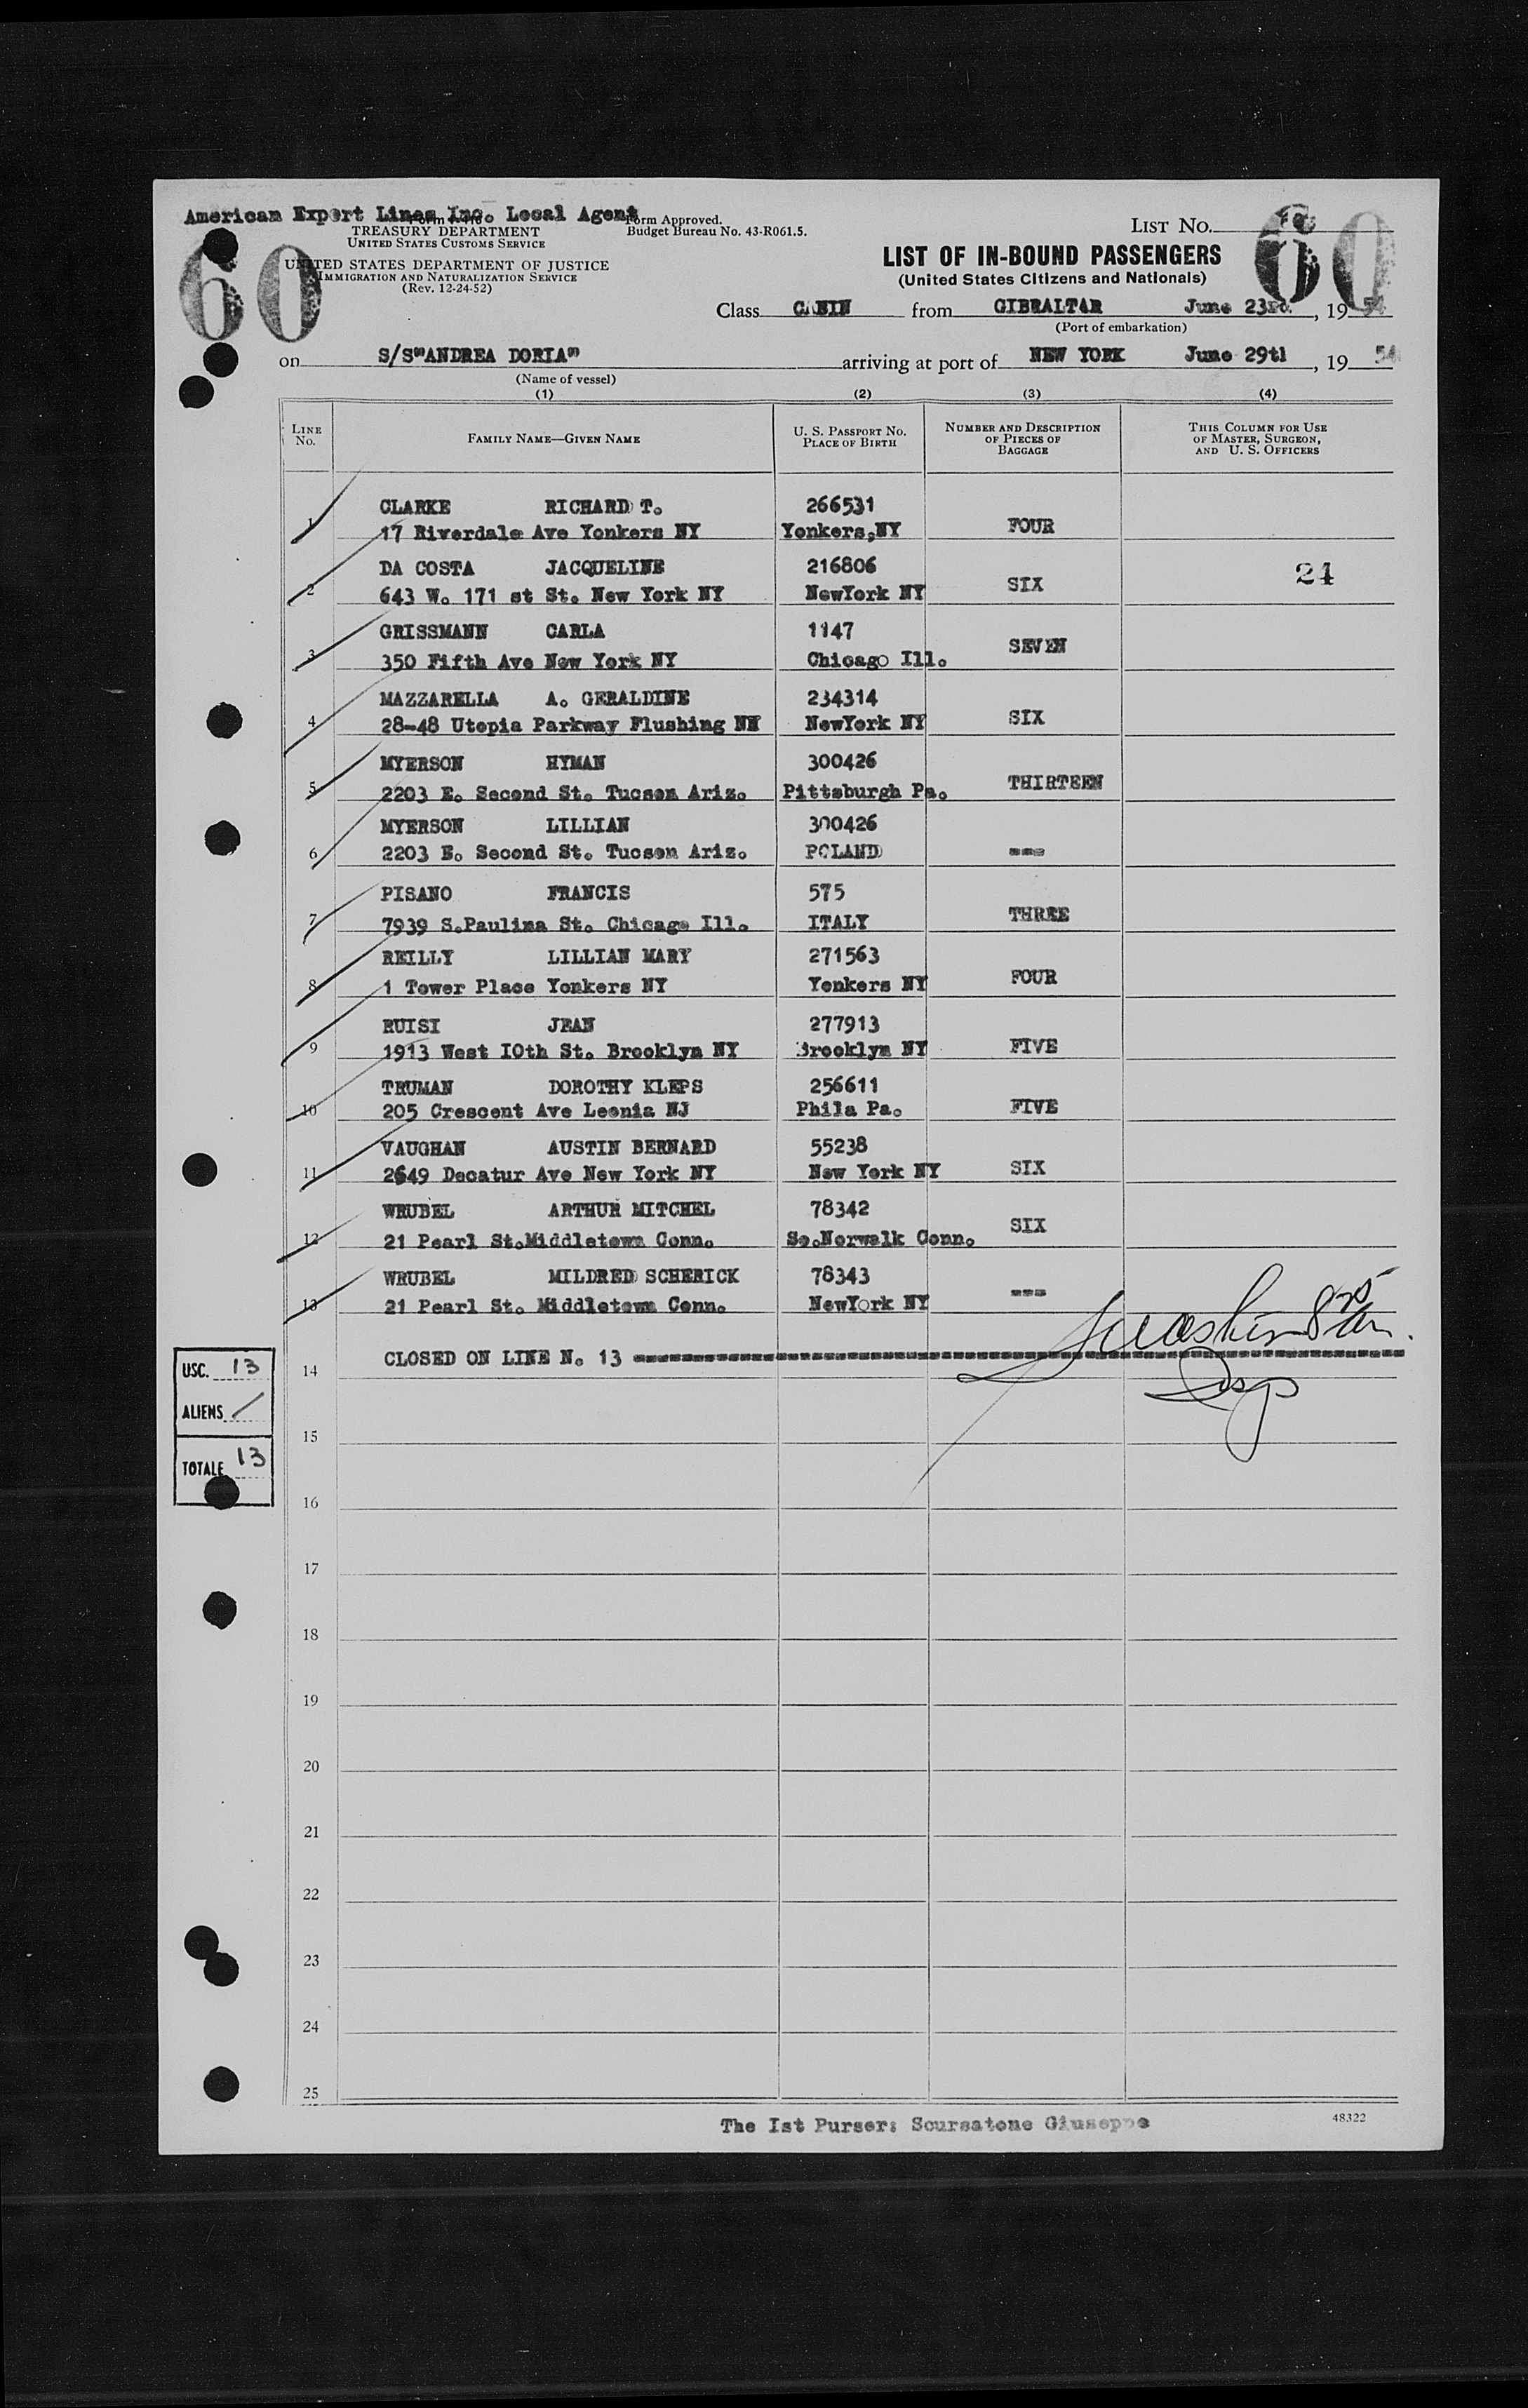 American Export Lines Inc. Local Agent
Form Approved.
Budget Bureau No. 43-R061.5.
TREASURY DEPARTMENT
UNITED STATES CUSTOMS SERVICE
UNITED STATES DEPARTMENT OF JUSTICE
IMMIGRATION AND NATURALIZATION SERVICE
(Rev. 12-24-52)
60
LIST No.
60
LIST OF IN-BOUND PASSENGERS
(United States Citizens and Nationals)
Class CABIN from GIBRALTAR June 23rd. , 19 54
(Port of embarkation)
on S/S"ANDREA DORIA" arriving at port of NEW YORK June 29th , 19 54
(Name of vessel)
(1) (2) (3) (4)
LINE No. FAMILY NAME—GIVEN NAME U. S. PASSPORT No. PLACE OF BIRTH NUMBER AND DESCRIPTION OF PIECES OF BAGGAGE THIS COLUMN FOR USE OF MASTER, SURGEON, AND U. S. OFFICERS
CLARKE RICHARD T. 266531
1 17 Riverdale Ave Yonkers NY Yonkers,NY FOUR
DA COSTA JACQUELINE 216806
2 643 W. 171 st St. New York NY NewYork NY SIX 24
GRISSMANN CARLA 1147
3 350 Fifth Ave New York NY Chicago Ill. SEVEN
MAZZARELLA A. GERALDINE 234314
4 28-48 Utopia Parkway Flushing NY NewYork NY SIX
MYERSON HYMAN 300426
5 2203 E. Second St. Tucson Ariz. Pittsburgh Pa. THIRTEEN
MYERSON LILLIAN 300426
6 2203 E. Second St. Tucson Ariz. POLAND ---
PISANO FRANCIS 575
7 7939 S.Paulina St. Chicago Ill. ITALY THREE
REILLY LILLIAN MARY 271563
8 1 Tower Place Yonkers NY Yonkers NY FOUR
RUISI JEAN 277913
9 1913 West IOth St. Brooklyn NY Brooklyn NY FIVE
TRUMAN DOROTHY KLEPS 256611
10 205 Crescent Ave Leonia NJ Phila Pa. FIVE
VAUGHAN AUSTIN BERNARD 55238
11 2649 Decatur Ave New York NY New York NY SIX
WRUBEL ARTHUR MITCHEL 78342
12 21 Pearl St.Middletown Conn. So.Norwalk Conn. SIX
WRUBEL MILDRED SCHERICK 78343
13 21 Pearl St. Middletown Conn. NewYork NY ---
14 CLOSED ON LINE N. 13
USC. 13
ALIENS /
TOTALE 13
15
16
17
18
19
20
21
22
23
24
25
The Ist Purser: Scursatone Giuseppe
48322